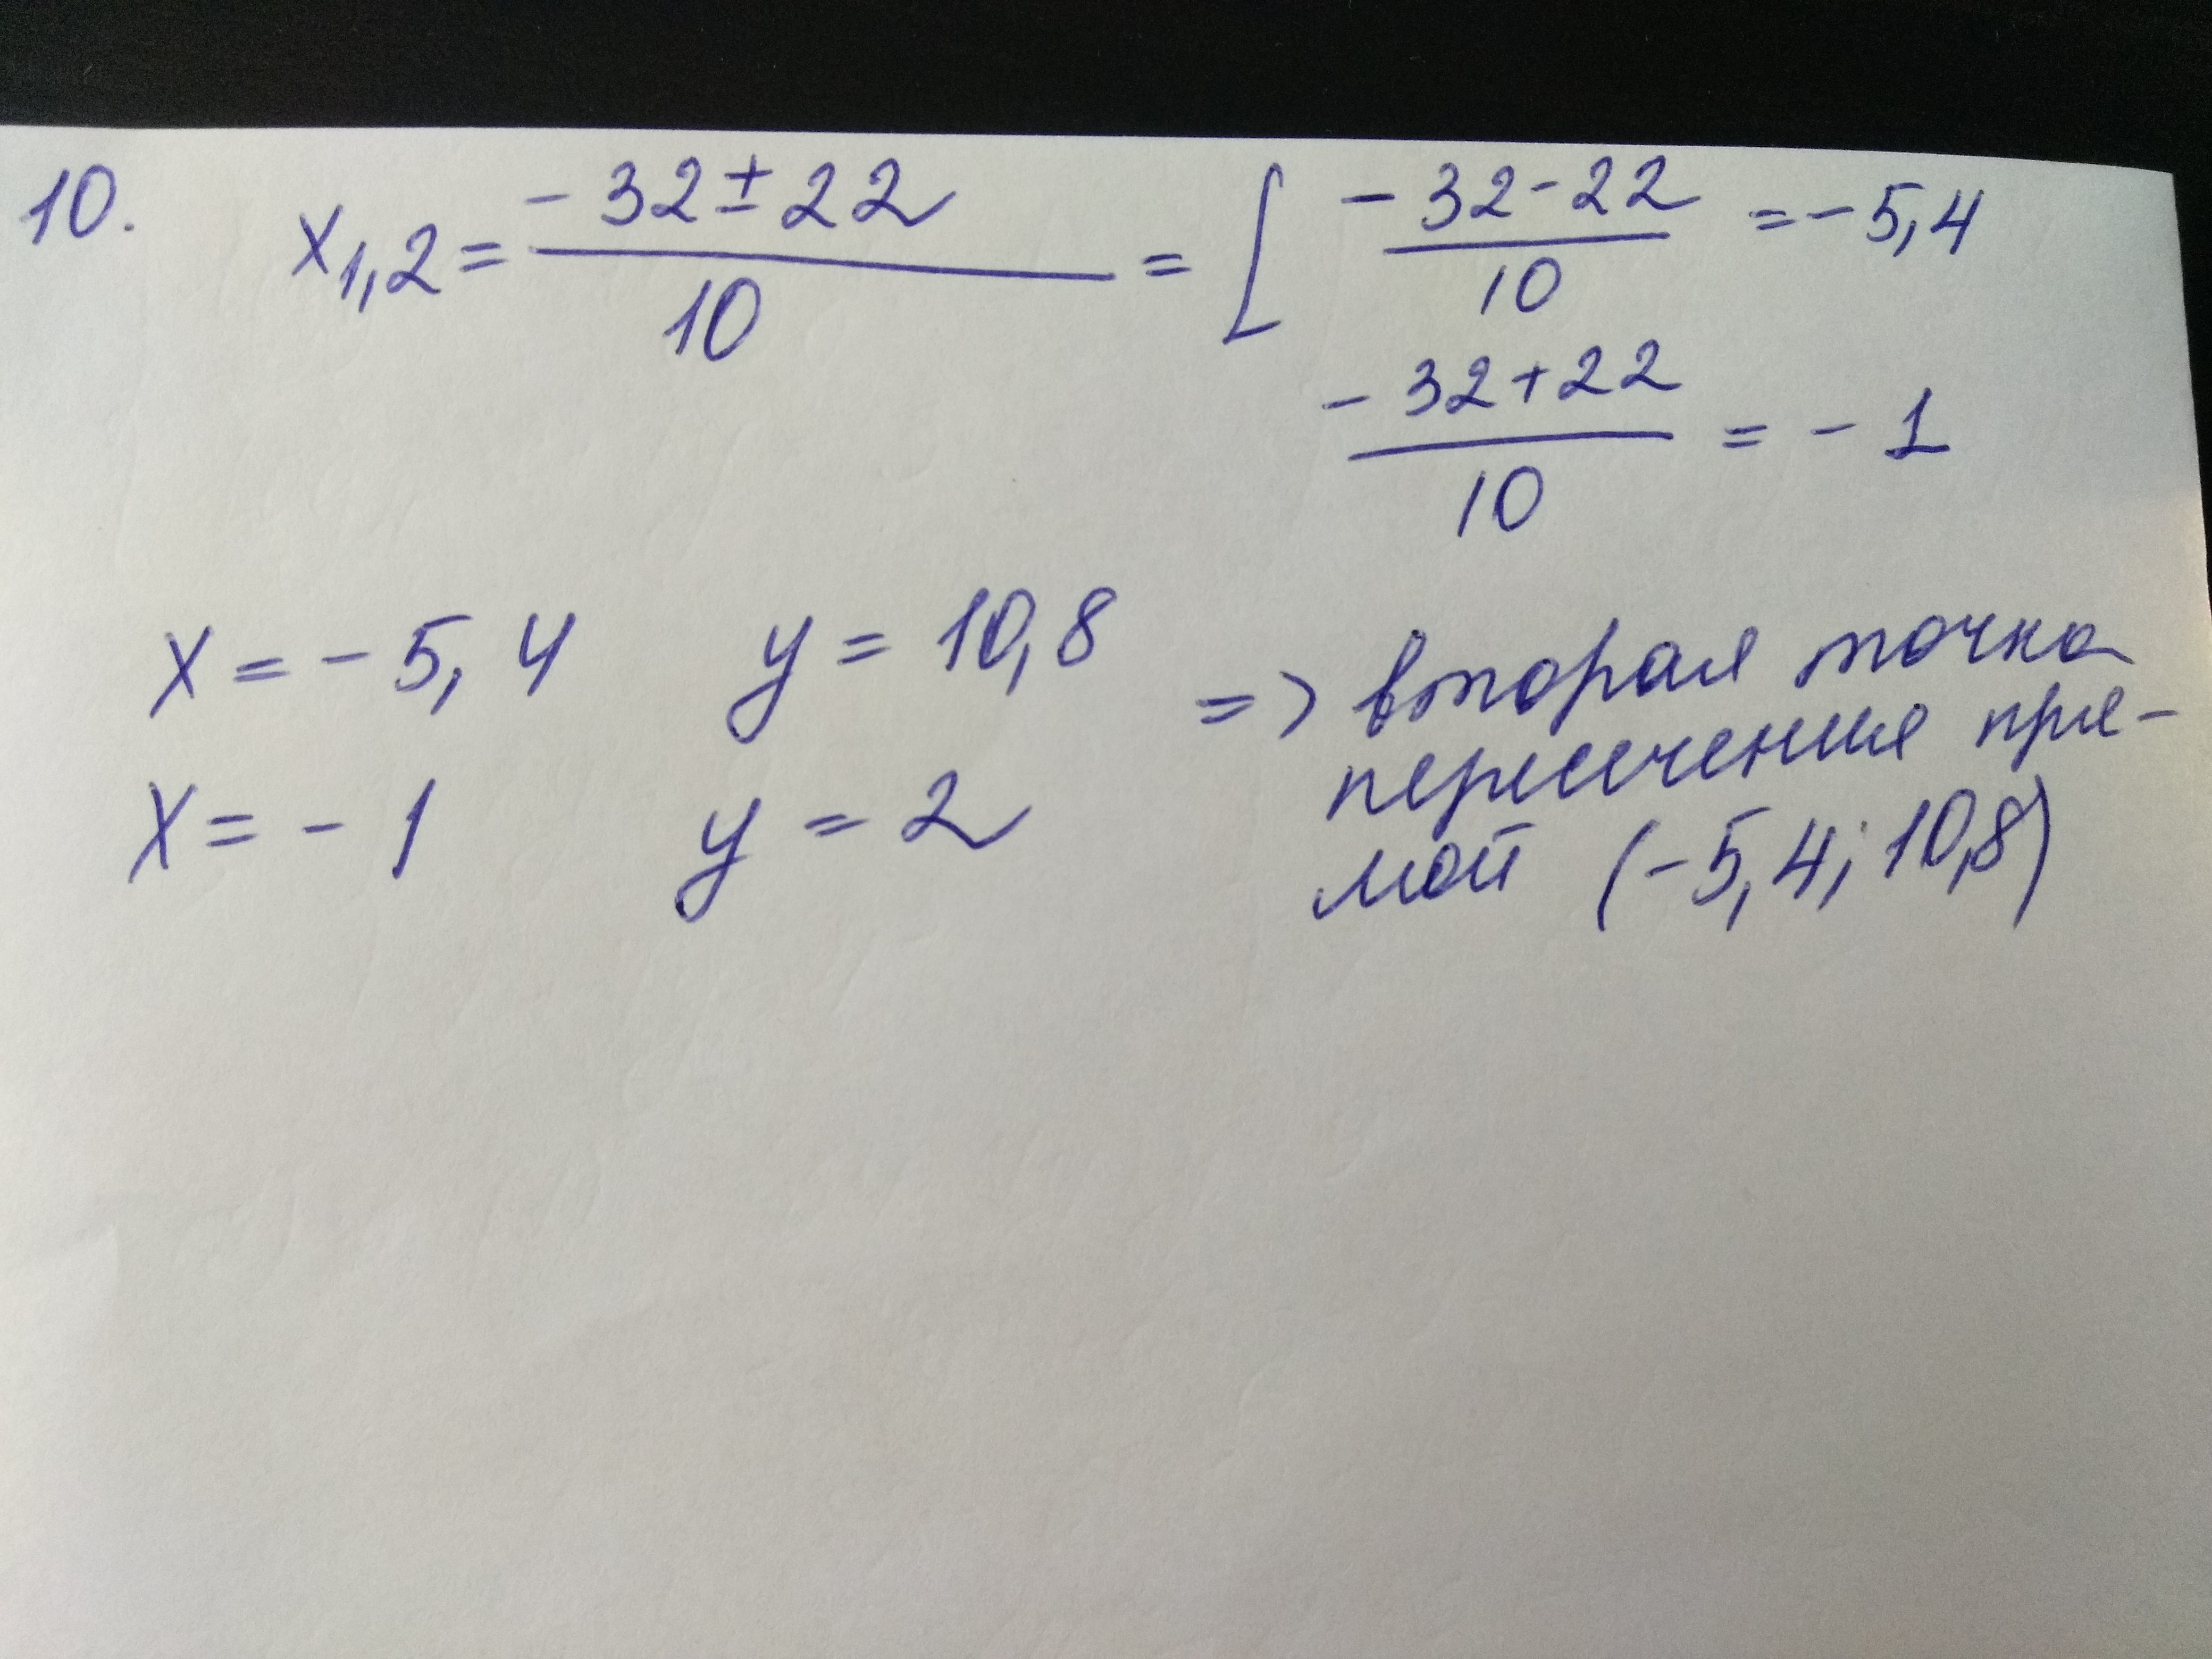 10. x1,2 = (-32 ± 22)/10 = [ (-32-22)/10 = -5,4
(-32+22)/10 = -1
x = -5,4 y = 10,8 => вторая точка
пересечения пря-
x = -1 y = 2 мой (-5,4; 10,8)